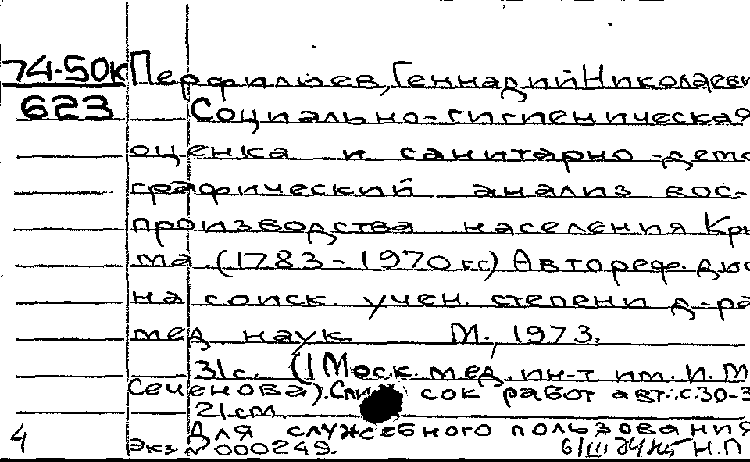 74-50к Перфильев, Геннадий Николаеви
623 Социально-гигиеническая
оценка и санитарно-демо
графический анализ вос-
производства населения Кры
ма (1783-1970 гг.) Автореф. дис
на соиск. учен. степени д-ра
мед наук. М., 1973.
31с. (1 Моск. мед. ин-т им. И. М
Сеченова). Спи сок работ авт.: с. 30-3
21см.
Для служебного пользования
4 Экз. № 000249. Н.П